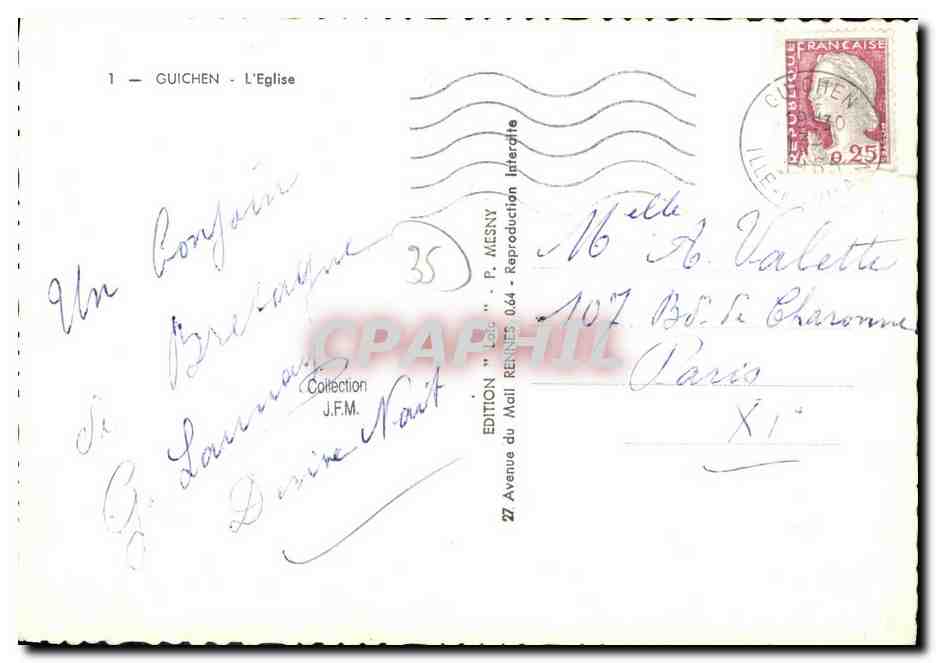 1 — GUICHEN - L'Eglise
Un bonjour
de Bretagne
G. Launay
35
Collection
J.F.M.
CPAPHIL
EDITION " Lolo " - P. MESNY
27 Avenue du Mail RENNES 0.64 - Reproduction Interdite
REPUBLIQUE FRANÇAISE
0,25
GUICHEN
ILLE-
Melle A. Valette
107. Bd. de Charonne
Paris
XIe